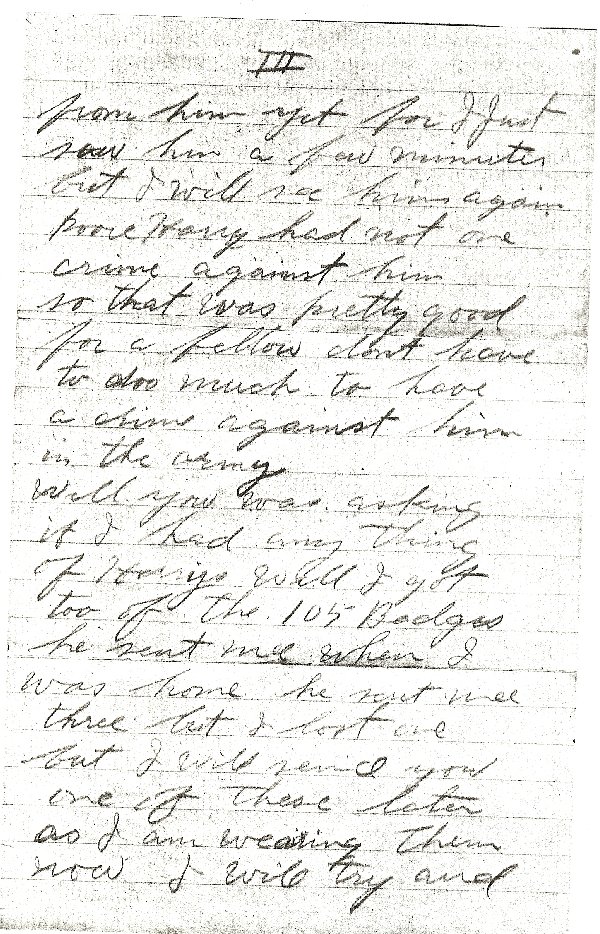 III
from him yet for I Just
saw him a few minutes
but I will see him again
poore Harry had not one
crime against him
so that was pretty good
for a fellow dont have
to doo much to have
a crime against him
in the army
well you was asking
if I had any thing
of Harrys well I got
too of the 105 Badges
he sent mee when I
was home he sent mee
three but I lost one
but I will send you
one of these later
as I am wearing them
now I will try and